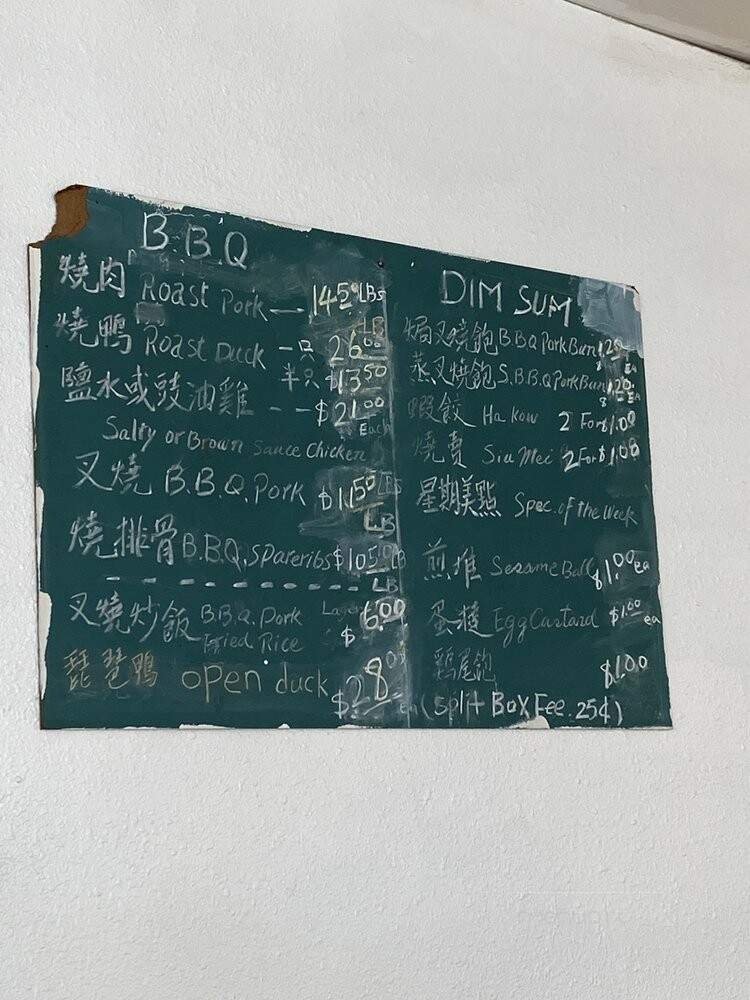 B.B.Q
燒肉 Roast Pork — 14.50 LBS
燒鴨 Roast Duck 一只 26.00
半只 $13.50
鹽水或豉油雞 -- $21.00 Each
Salty or Brown Sauce Chicken
叉燒 B.B.Q. Pork $11.50 LBS
LB
燒排骨 B.B.Q. Spareribs $10.50 LB
LB
叉燒炒飯 B.B.Q. Pork $6.00
Fried Rice
琵琶鴨 open duck $28.00 ea
DIM SUM
焗叉燒飽 B.B.Q Pork Bun 1.20 EA
蒸叉燒飽 S.B.B.Q Pork Bun 1.20 EA
蝦餃 Ha Kow 2 For $1.00
燒賣 Siu Mei 2 For $1.00
星期美點 Spec. of the Week
煎堆 Sesame Ball $1.00 ea
蛋撻 Egg Custard $1.00 ea
鷄尾飽 $1.00
(Split Box Fee .25¢)